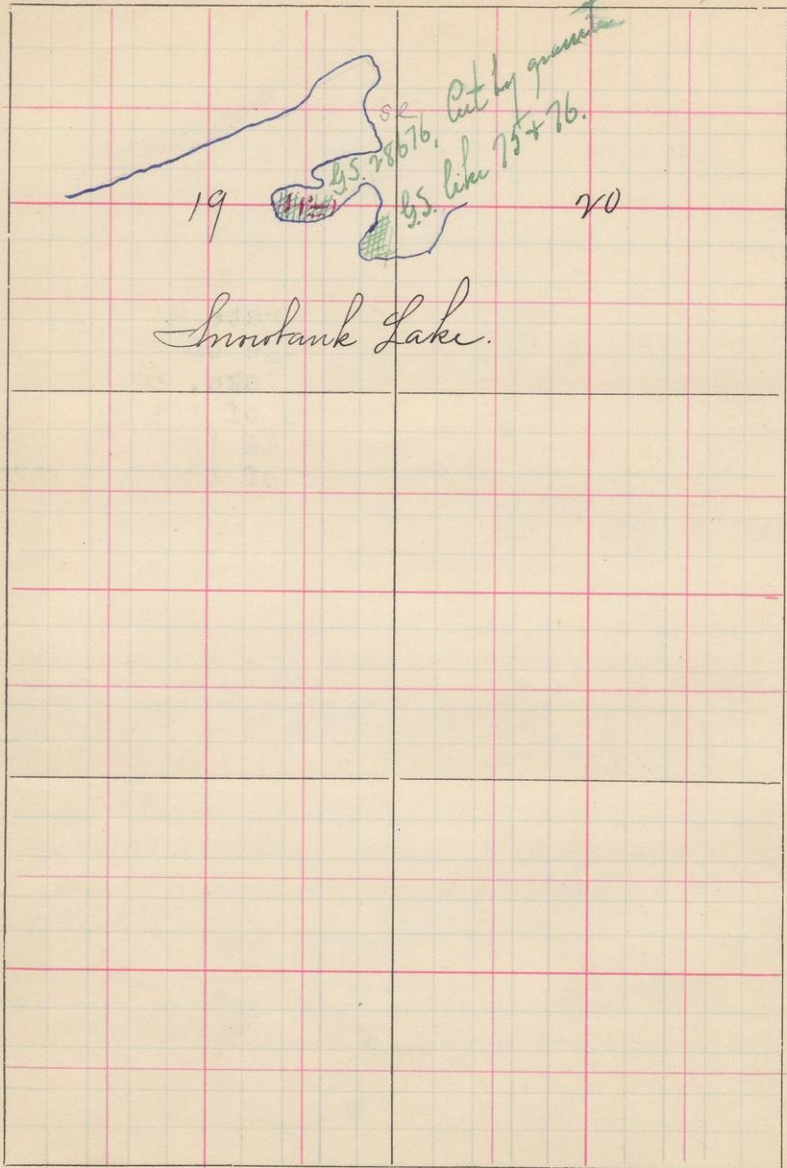 se
G.S. 28676, Cut by granite
G.S. like 75 + 76.
19
20
Snowbank Lake.